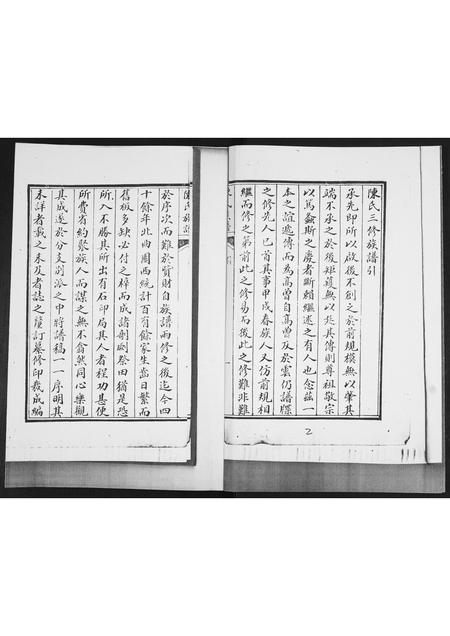 陳氏三修族譜引
承先即所以啟後不創之於前規模無以肇其
端不承之於後矩矱無以光其傳則尊祖敬宗
以篤彝斯之慶者斷賴繼述之有人也念茲一
本之誼遞傳而為高曾自高曾及於雲仍譜牒
之修先人已首其事甲戌春族人又仿前規相
繼而修之第前此之修易而後此之修難非難
陳氏族譜
於序次而難於貲財自族譜兩修之後迄今四
十餘年北曲周西統計百有餘家生齒日繁而
舊板多缺必付之梓而成諸剞劂祭田猶是恐
所入不勝其所出有石印局其人者程功甚便
所費省約聚族人而謀之無不翕然同心樂觀
其成遂於分支別派之中將譜稿一一序明其
未詳者載之未及者誌之釐訂纂修印裁成編
2